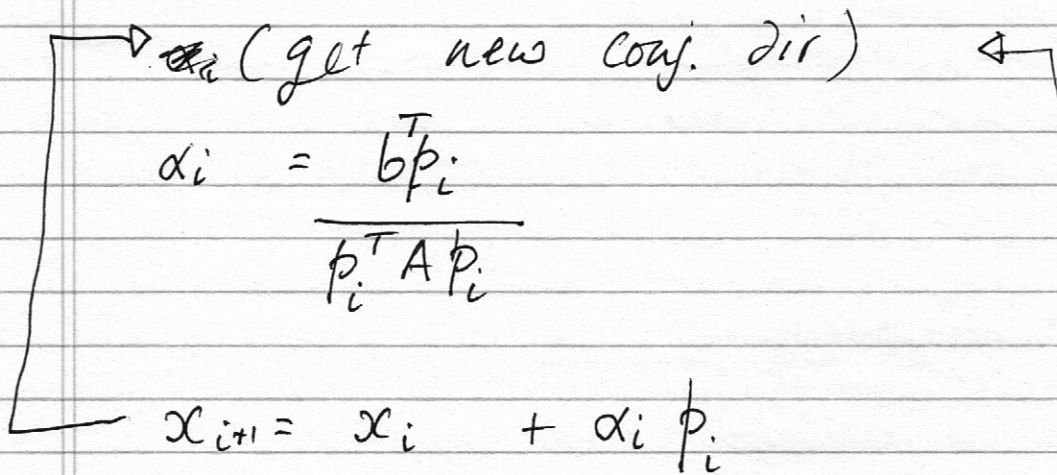 (get new conj. dir)
αᵢ = bᵀpᵢ
pᵢᵀ A pᵢ
xᵢ₊₁ = xᵢ + αᵢ pᵢ